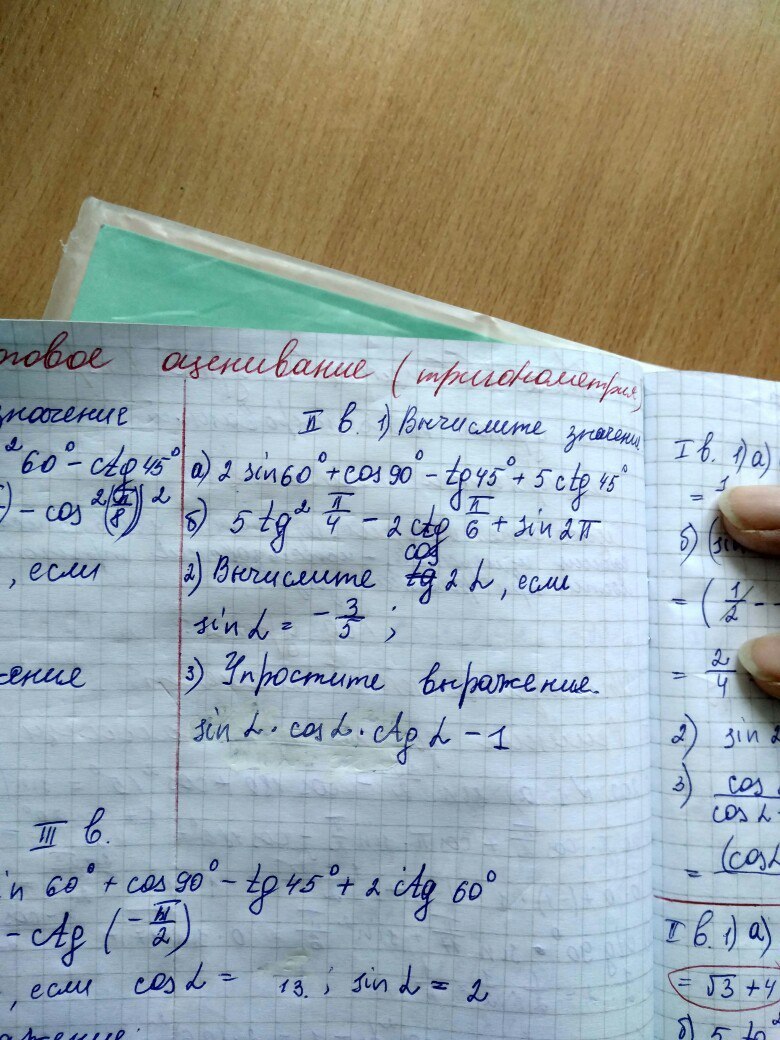 оценивание (тригонометрия)
значение
²60° - ctg 45°
- cos²(π/8))²
, если
II в. 1) Вычислите значение
а) 2 sin 60° + cos 90° - tg 45° + 5 ctg 45°
б) 5 tg² π/4 - 2 ctg π/6 + sin 2π
2) Вычислите cos 2α, если
sin α = -3/5 ;
3) Упростите выражение.
sin α · cos α · ctg α - 1
III в.
in 60° + cos 90° - tg 45° + 2 ctg 60°
- ctg (-π/2)
, если cos α = 13. ; sin α = 2
I в. 1) а)
= 1
б) (
= (1/2 -
= 2/4
2) sin 2
3) cos
cos α
= (cos α
II в. 1) а)
= √3 + 4
б) 5 tg²